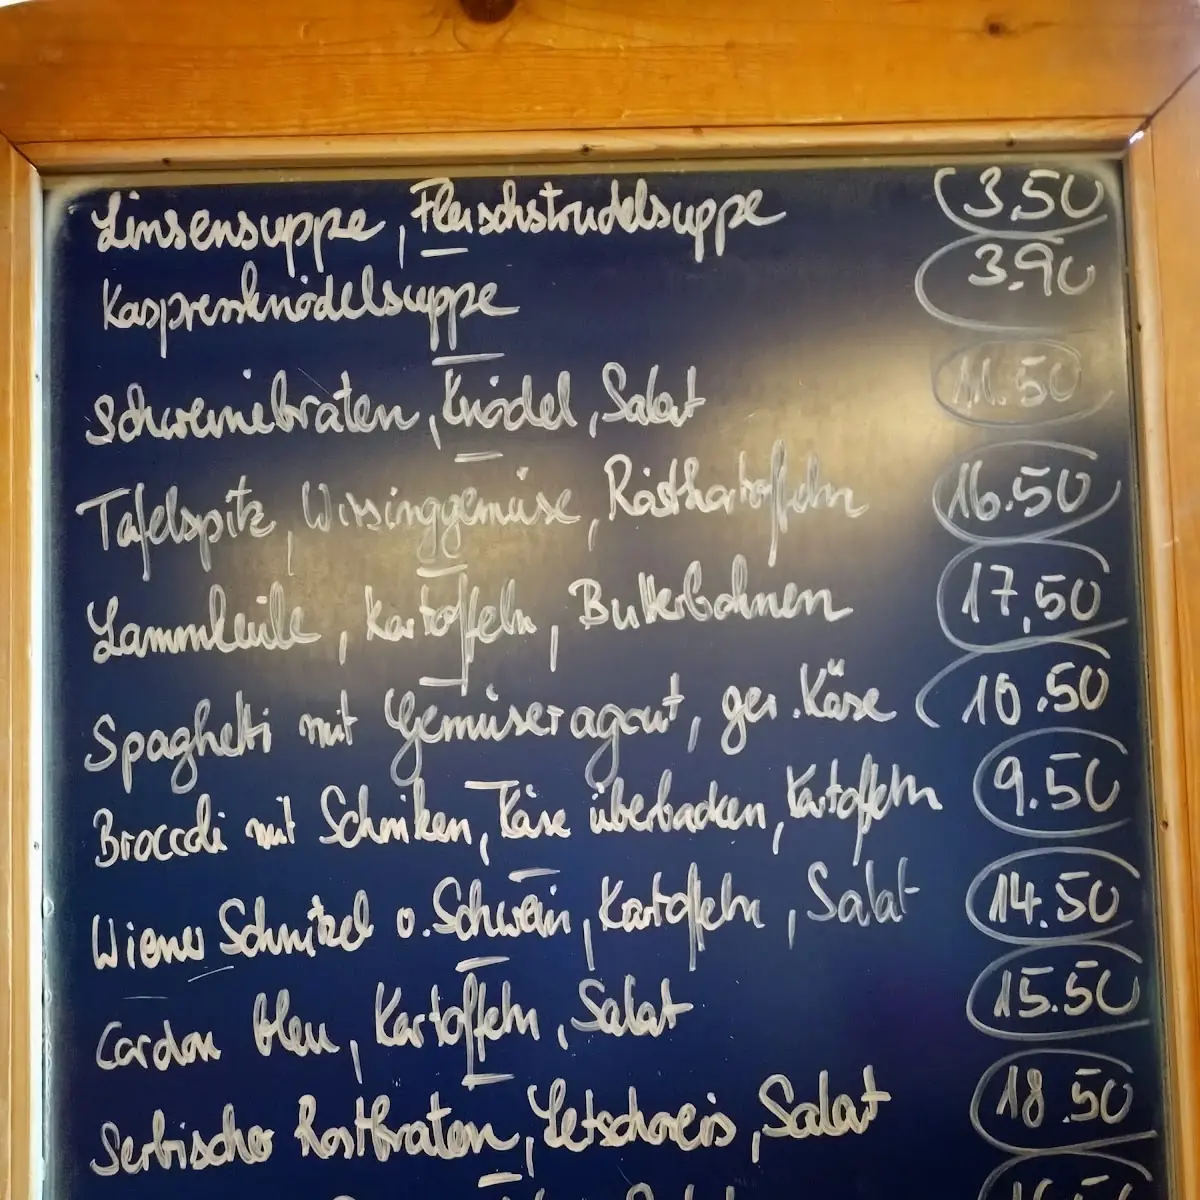 Linsensuppe, Fleischstrudelsuppe 3.50
Kaspressknödelsuppe 3.90
Schweinebraten, Knödel, Salat 11.50
Tafelspitz, Wirsinggemüse, Röstkartoffeln 16.50
Lammkeule, Kartoffeln, Butterbohnen 17,50
Spaghetti mit Gemüseragout, ger. Käse 10.50
Broccoli mit Schinken, Käse überbacken, Kartoffeln 9.50
Wiener Schnitzel v. Schwein, Kartoffeln, Salat 14.50
Cordon bleu, Kartoffeln, Salat 15.50
Serbischer Rostbraten, Letschoreis, Salat 18.50